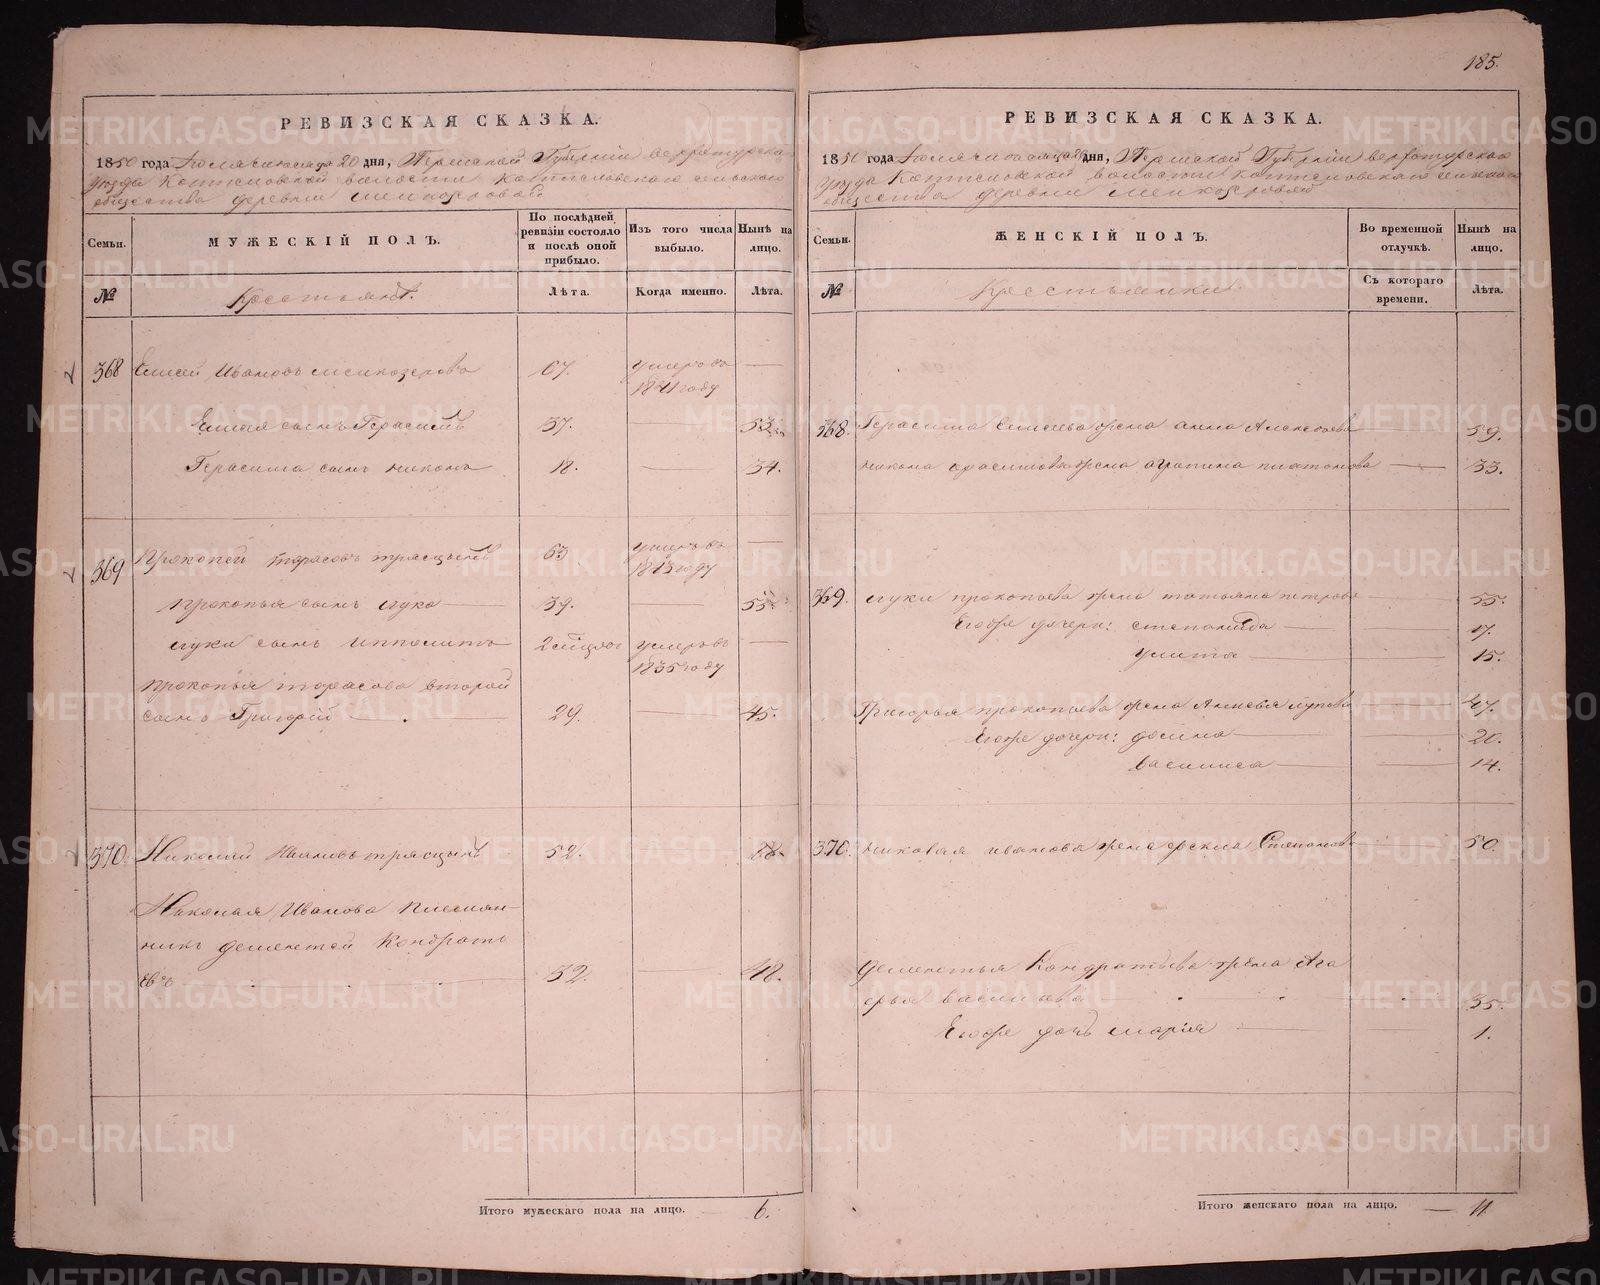 185.
РЕВИЗСКАЯ СКАЗКА.
1850 года Іюля 20 дня, Пермской Губерніи Верхотурскаго
уезда Коптеловской волости Коптеловскаго сельскаго
общества деревни Мелкозеровой
Семьи.
МУЖЕСКІЙ ПОЛЪ.
По послѣдней ревизіи состояло и послѣ оной прибыло.
Изъ того числа выбыло.
Нынѣ на лицо.
№
Крестьянъ.
Лѣта.
Когда именно.
Лѣта.
368 Елисей Ивановъ Мелкозеровъ 67. умеръ въ —
1841 году
Елисея сынъ Герасимъ 37. 53.
Герасима сынъ Никонъ 18. — 34.
369 Прокопей Тарасовъ Трясцынъ 63 умеръ въ —
1843 году
Прокопья сынъ Лука — 39. — 55.
Луки сынъ Ипполитъ умеръ въ —
1835 году
Прокопья Тарасова второй
сынъ Григорій — 29. — 45.
370. Николай Ивановъ Трясцынъ 52.
Николая Иванова племян-
никъ Дементей Кондрать
евъ 32. — 48.
Итого мужескаго пола на лицо. — 6.
РЕВИЗСКАЯ СКАЗКА.
1850 года Іюля дня, Пермской Губерніи Верхотурскаго
уезда Коптеловской волости Коптеловскаго сельскаго
общества деревни Мелкозеровой
Семьи.
ЖЕНСКІЙ ПОЛЪ.
Во временной отлучкѣ.
Нынѣ на лицо.
№
Крестьянки.
Съ котораго времени.
Лѣта.
368. Герасима Елисеева жена Анна Алексеева — 59.
Никона Герасимова жена Агрипина Платонова — 33.
369. Луки Прокопьева жена Татьяна Петрова — 55.
Егоже дочери: Степанида — 17.
Улита — 15.
Григорья Прокопьева жена — 47.
Егоже дочери: — 20.
Василиса — 14.
370. Николая Иванова жена Степанова 50.
Дементья Кондратьева жена Ага
фья Васильева 35.
Егоже дочь Марія — 1.
Итого женскаго пола на лицо. — 11
METRIKI.GASO-URAL.RU